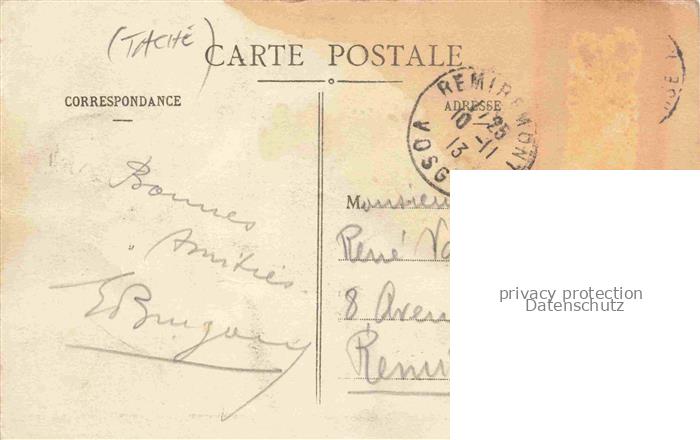 (TACHÉ)
CARTE POSTALE
CORRESPONDANCE
ADRESSE
REMIREMONT
17 25
10 -11
13
VOSG
Bonnes
Amitiés.
Monsieur
René
8 Aven
Remi
privacy protection
Datenschutz